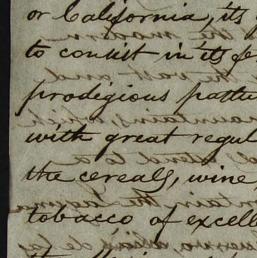 or California, its
to consist in its fer
prodigious pastu
with great regul
the cereals, wine
tobacco of excell